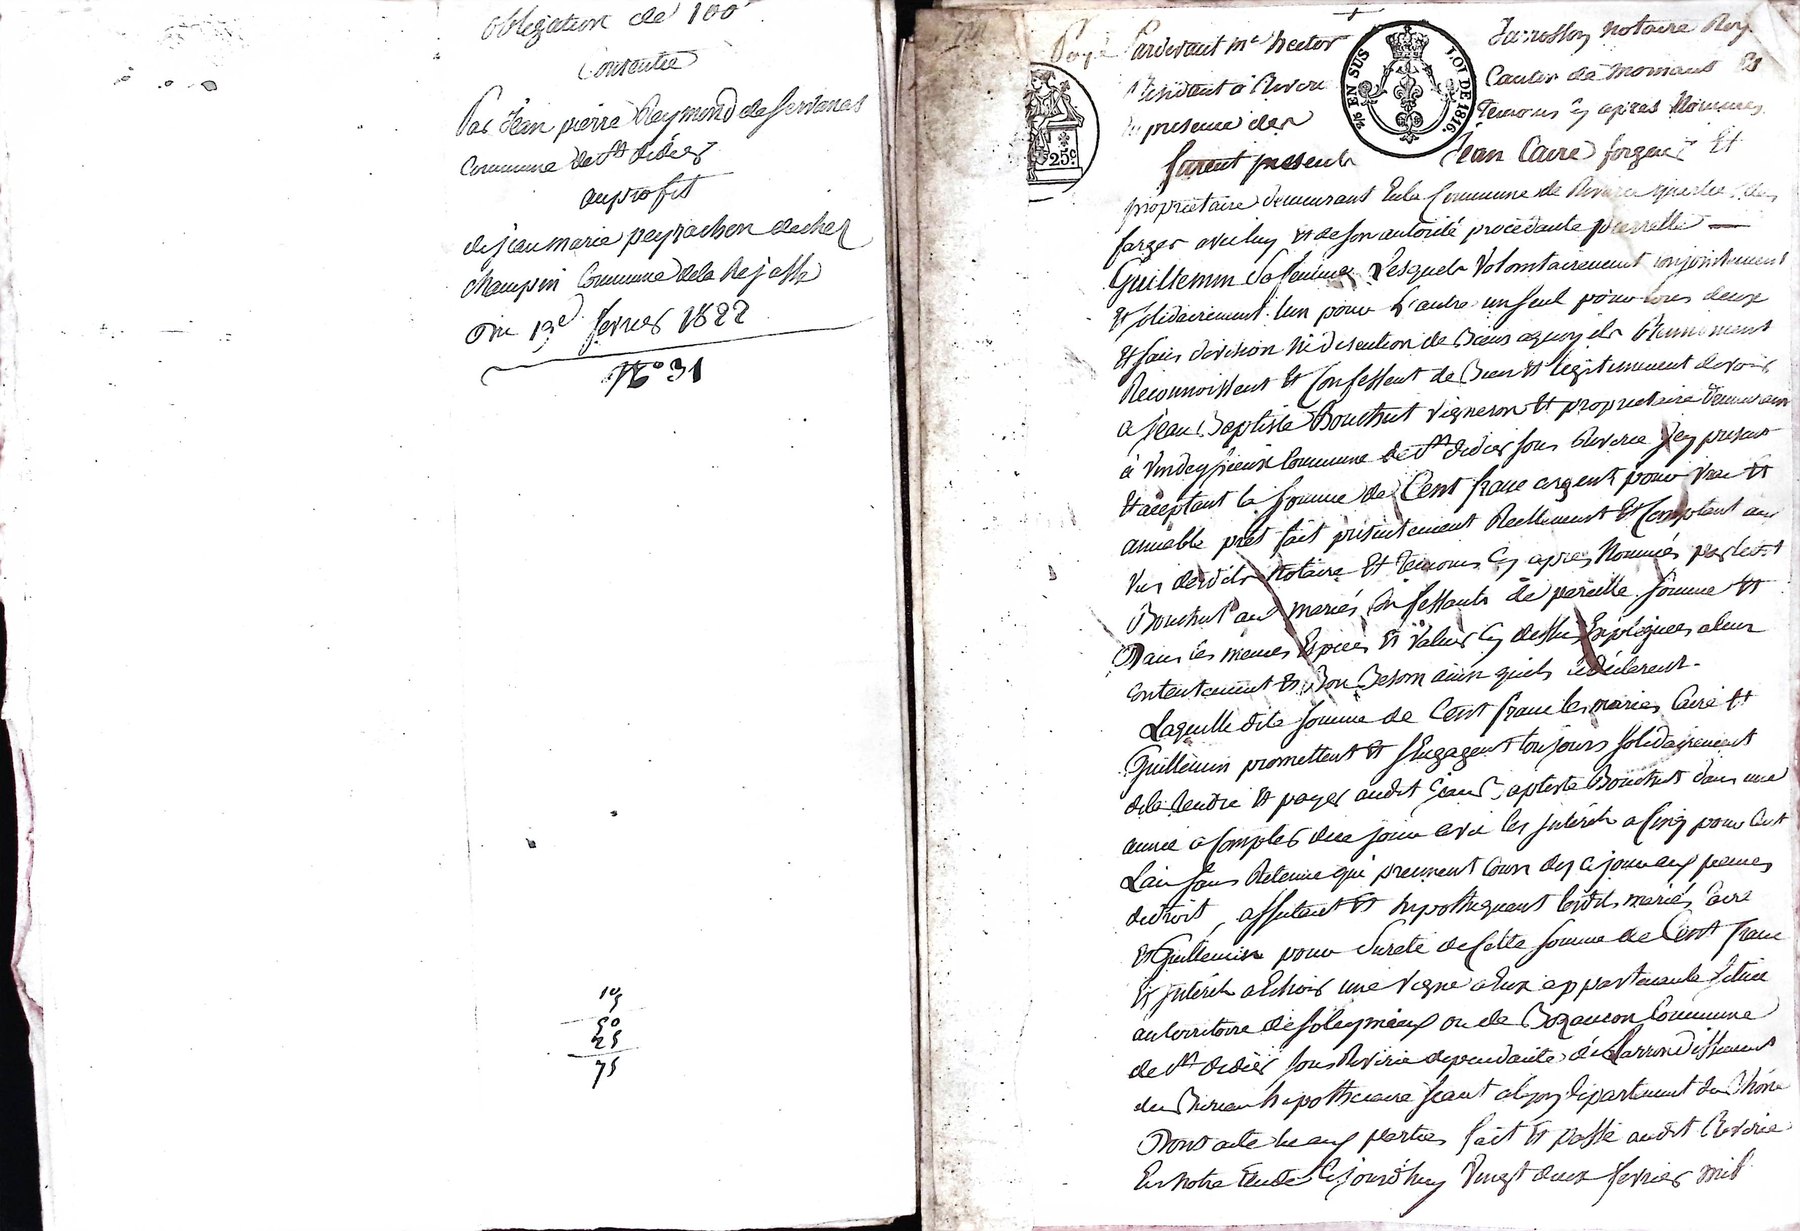 obligation de 100f
Consentie
Par Jean pierre Reymond de
Commune de st didier
au profit
de jean marie peyrachon de chez
champin Commune de la Rejasse
Du 13e fevrier 1822
N.º 31
10
5
50
25
75
Payé Pardevant me hector Jarrosson Notaire Roy
Résidant à Riverie Canton de Mornant Et
En presence des temoins cy apres Nommés
furent presents Jean Caire forgeur Et
proprietaire demeurant En la Commune de Riverie quartier des
forges avec luy Et de son autorité procedante pierrette
Guillemin Sa femme Lesquels Volontairement conjointement
Et solidairement l'un pour L'autre un seul pour tous deux
Et sans division Ni discution de Biens a quoy ils Renoncent
Reconnoissent Et Confessent de Bien Et légitimement devoir
a Jean Baptiste Bouchut Vigneron Et proprietaire demeurant
à Commune de St didier sous Riverie Icy present
Et aceptant la somme de Cent franc argent pour vrai Et
amiable prêt fait présentement Reellement Et Comptant au
Vus desdits Notaire Et temoins Cy apres Nommés par ledit
Bouchut aux mariés Confessants de pareille somme Et
Dans les mêmes Espèces Et Valeur Cy dessus Expliquées a leur
contentement Et Bon Besoin ainsi qu'ils le déclarent.
Laquelle dite somme de Cent franc les mariés Caire Et
Guillemin promettent Et s'Engagent toujours solidairement
de la Rendre Et payer audit Jean Baptiste Bouchut dans une
année a Compter de ce jour avec les intérêts a Cinq pour Cent
L'an sans Retenue qui prennent Cours des ce jour aux peines
de droit, affectent Et hypothequent lesdits mariés Caire
Et Guillemin pour Sureté de Cette somme de Cent franc
Et intérêts a Echoir une Vigne a Eux appartenante Située
au territoire de Soleymieux ou de Bozancon Commune
de St didier sous Riverie dependante de L'arrondissement
du Bureau hipothecaire Séant à Lyon département du Rhône
Dont acte Lu aux parties fait Et passé audit Riverie
En Notre Etude Cejourd'huy Vingt deux fevrier mil
25c
26 EN SUS
LOI DE 1816.